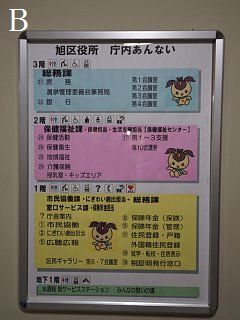 B
旭区役所 庁内あんない
3階
総務課
庶務 第1会議室
選挙管理委員会事務局 第2会議室
銀行 第3会議室
第4会議室
2階
保健福祉課・保健担当・生活支援担当【保健福祉センター】
保健活動 第1〜3支援
保健衛生 第10会議室
地域福祉
介護保険
授乳室・キッズエリア
1階
市民協働・にぎわい創出担当・総務課
窓口サービス課・保険年金担当
?庁舎案内
①市民協働
②にぎわい創出担当
⑤広聴広報
区民ギャラリー 第6・7会議室
保険年金(保険)
保険年金(管理)
住民登録・戸籍
外国籍住民登録
就学・転校・転居表示
税証明発行窓口
地下1階
水道局 旭サービスステーション みんなの憩いの場